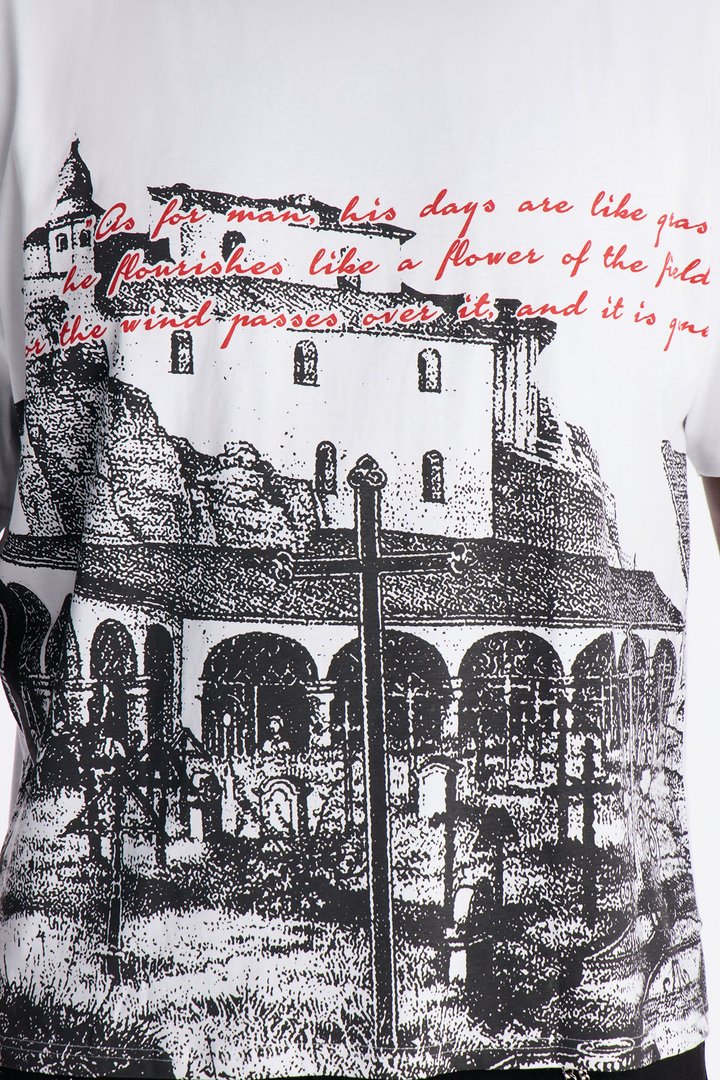 "As for man, his days are like gras
he flourishes like a flower of the field
or the wind passes over it, and it is gone